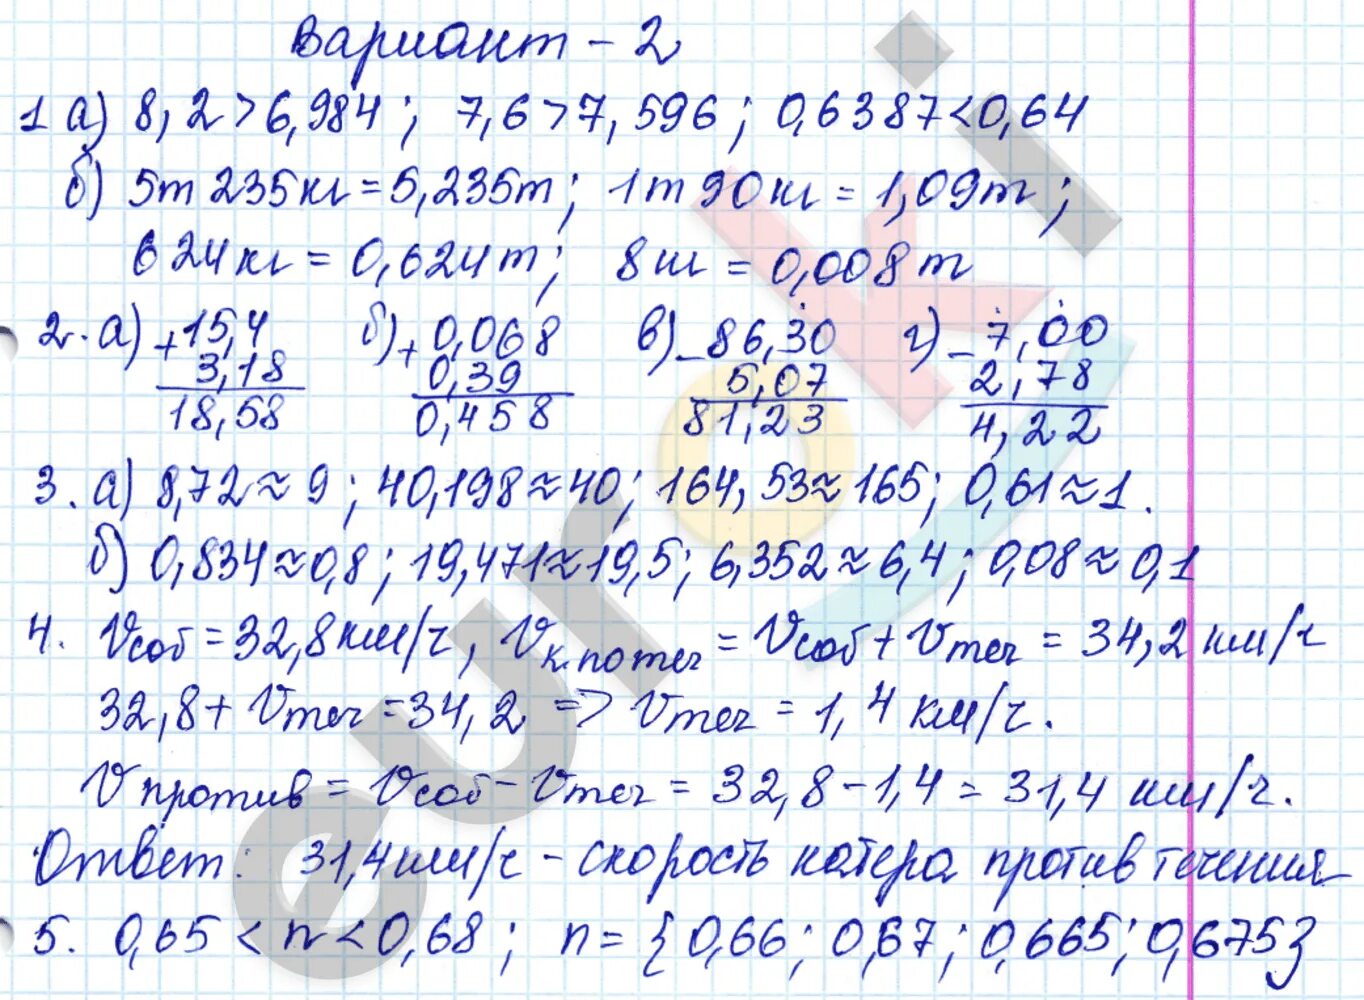 Вариант - 2
1 а) 8,2>6,984; 7,6>7,596; 0,6387<0,64
б) 5т 235кг=5,235т; 1т 90кг=1,09т;
624кг=0,624т; 8кг=0,008т
2. а) +15,4 б) + 0,068 в) - 86,30 г) - 7,00
3,18 0,39 5,07 2,78
18,58 0,458 81,23 4,22
3. а) 8,72≈9; 40,198≈40; 164,53≈165; 0,61≈1.
б) 0,834≈0,8; 19,471≈19,5; 6,352≈6,4; 0,08≈0,1
4. Vсоб=32,8км/ч, Vк.по теч=Vсоб+Vтеч=34,2 км/ч
32,8+Vтеч=34,2 => Vтеч=1,4 км/ч.
Vпротив=Vсоб-Vтеч=32,8-1,4=31,4 км/ч.
Ответ: 31,4км/ч - скорость катера против течения
5. 0,65<n<0,68; n={0,66; 0,67; 0,665; 0,675}
euroki